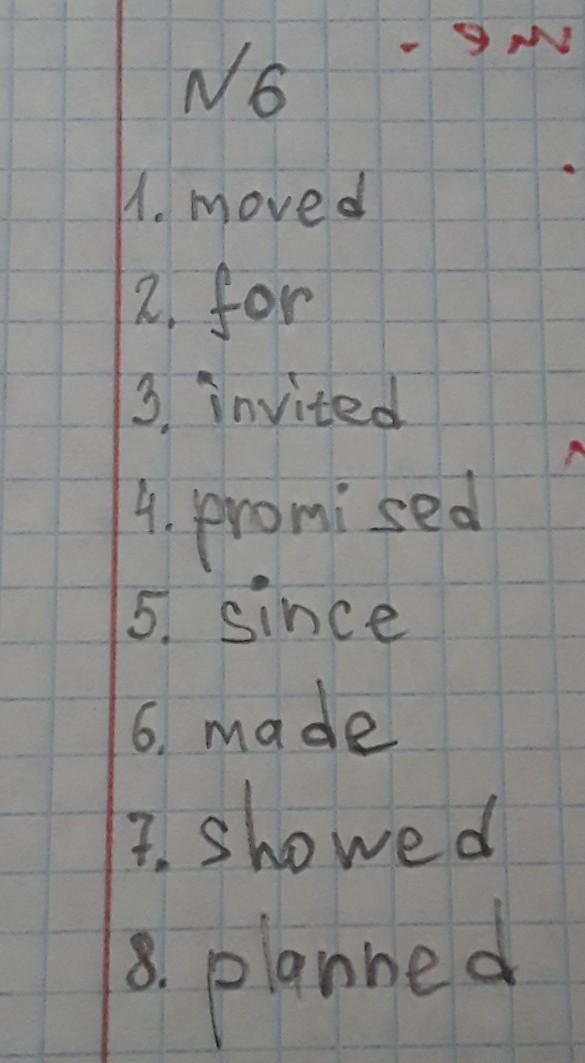 N6
1. moved
2. for
3. invited
4. promised
5. since
6. made
7. showed
8. planned